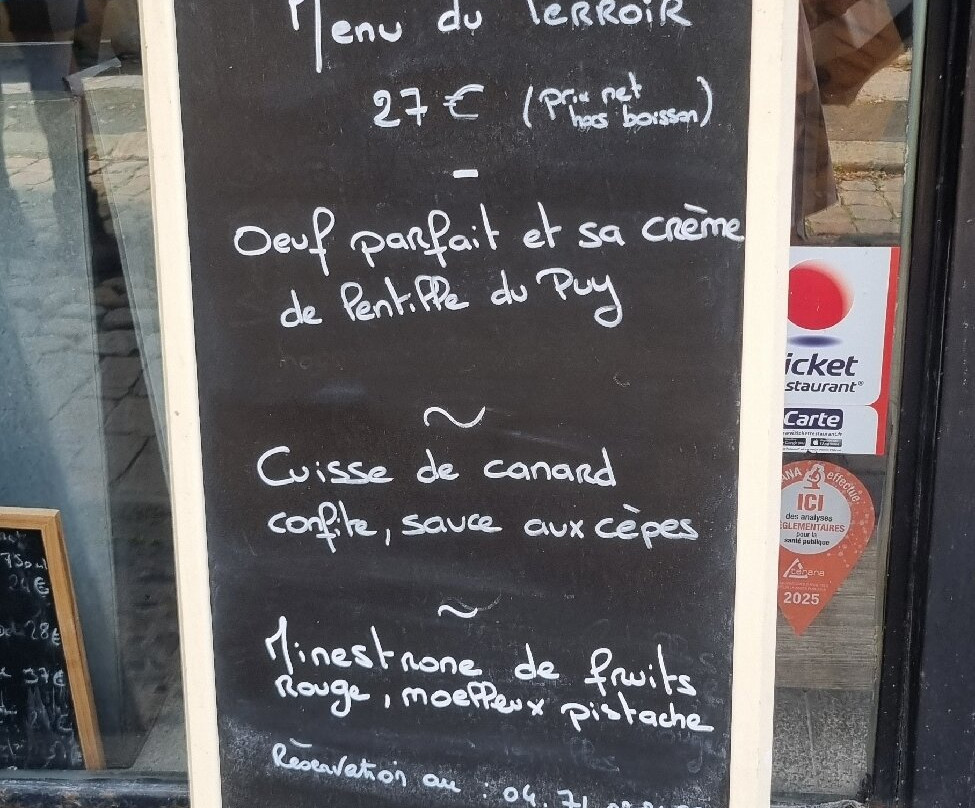 Menu du TERROIR
27 € (prix net
hors boisson)
-
Oeuf parfait et sa crème
de lentille du Puy
~
Cuisse de canard
confite, sauce aux cèpes
~
Minestrone de fruits
rouge, moelleux pistache
Réservation au : 04.71
icket
staurant®
Carte
ANA effectue
ICI
des analyses
GLEMENTAIRES
pour la
santé publique
carana
2025
75cl
24€
28€
37€